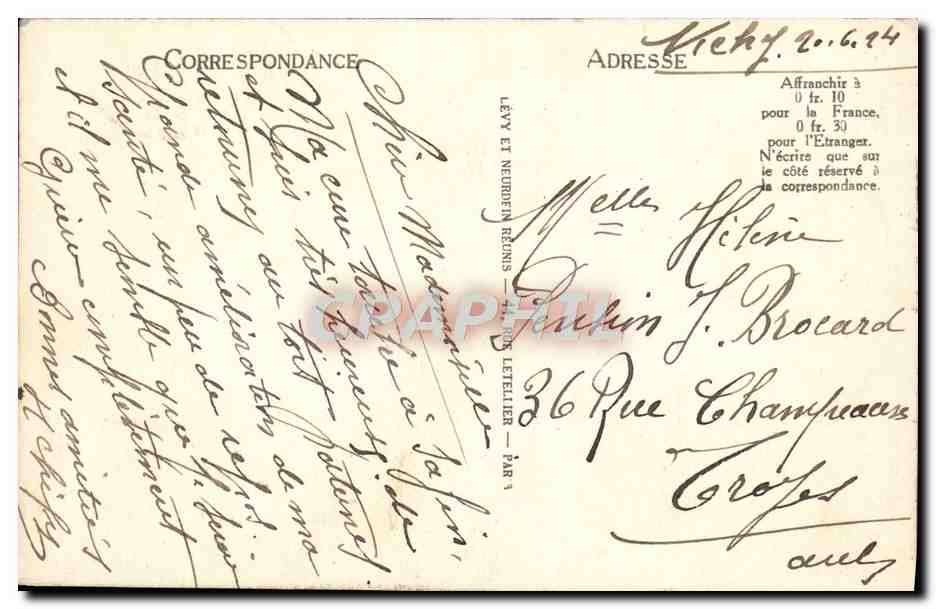 CORRESPONDANCE
ADRESSE
Vichy, 20.6.24
Affranchir à
0 fr. 10
pour la France,
0 fr. 30
pour l'Etranger.
N'écrire que sur
le côté réservé à
la correspondance.
LÉVY ET NEURDEIN RÉUNIS — 44, RUE LETELLIER — PAR
Chère Mademoiselle
Ma cure touche à sa fin,
et suis très de
retour au
Grande amélioration de ma
Santé, un peu de repos
et il me semble que je serai
Guérie complètement
Bonnes amitiés
Melles Hélène
Pension J. Brocard
36 Rue Champeaux
Troyes
aube
CPAPHIL